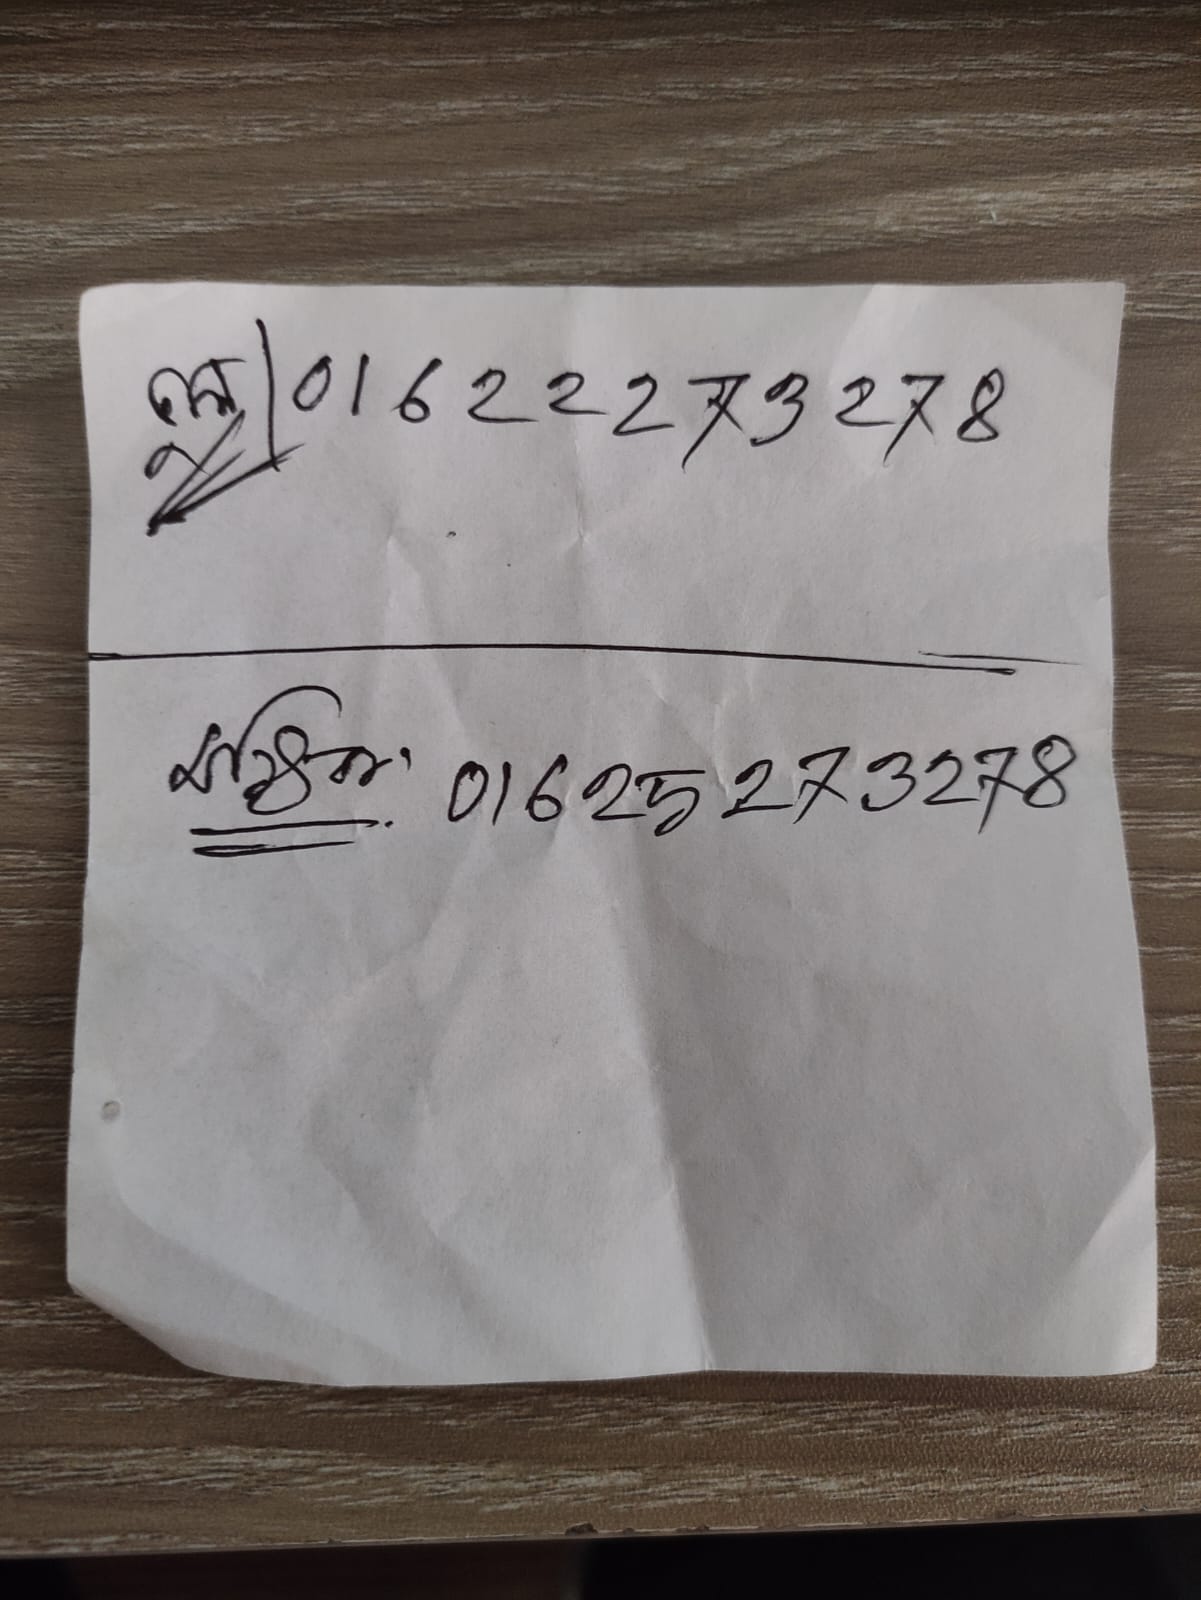 ভুল 01622273278
সঠিক: 01625273278